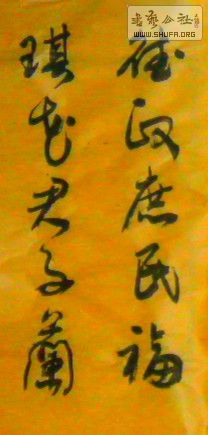 德政庶民福
琪花君子蘭
書藝公社
WWW.SHUFA.ORG